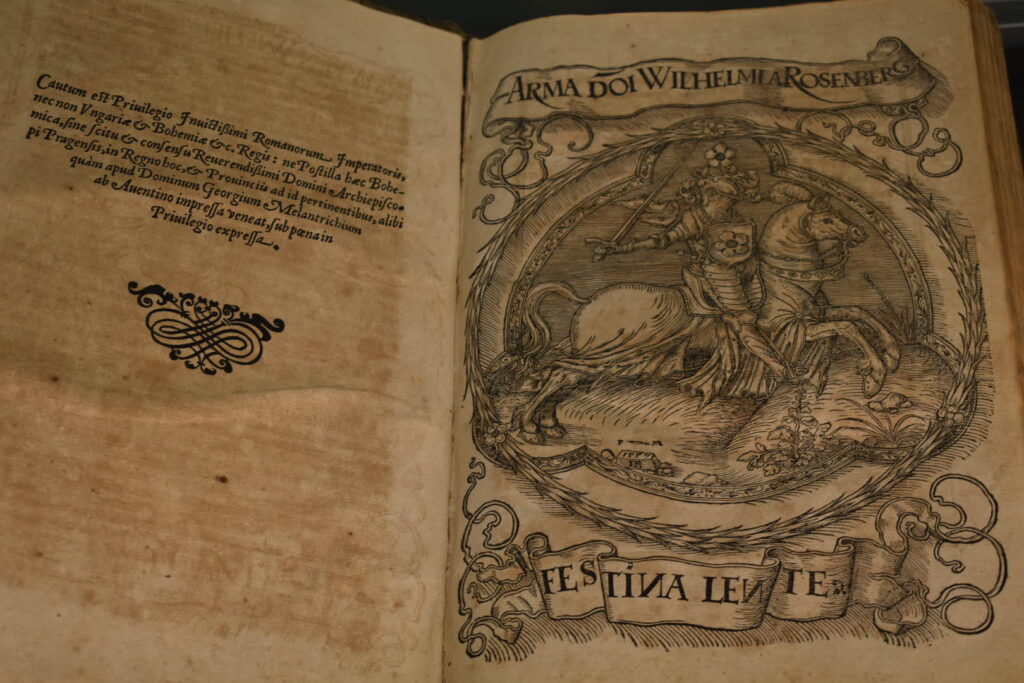 Cautum est Priuilegio Inuictissimi Romanorum Imperatoris,
nec non Vngariæ & Bohemiæ &c. Regis: ne Postilla hæc Bohe-
mica, sine scitu & consensu Reuerendissimi Domini Archiepisco-
pi Pragensis, in Regno hoc, & Prouinciis ad id pertinentibus, alibi
quàm apud Dominum Georgium Melantrichium
ab Auentino impressa veneat, sub pœna in
Priuilegio expressa.
ARMA DÕI WILHELMI A ROSENBERG
FESTINA LENTE